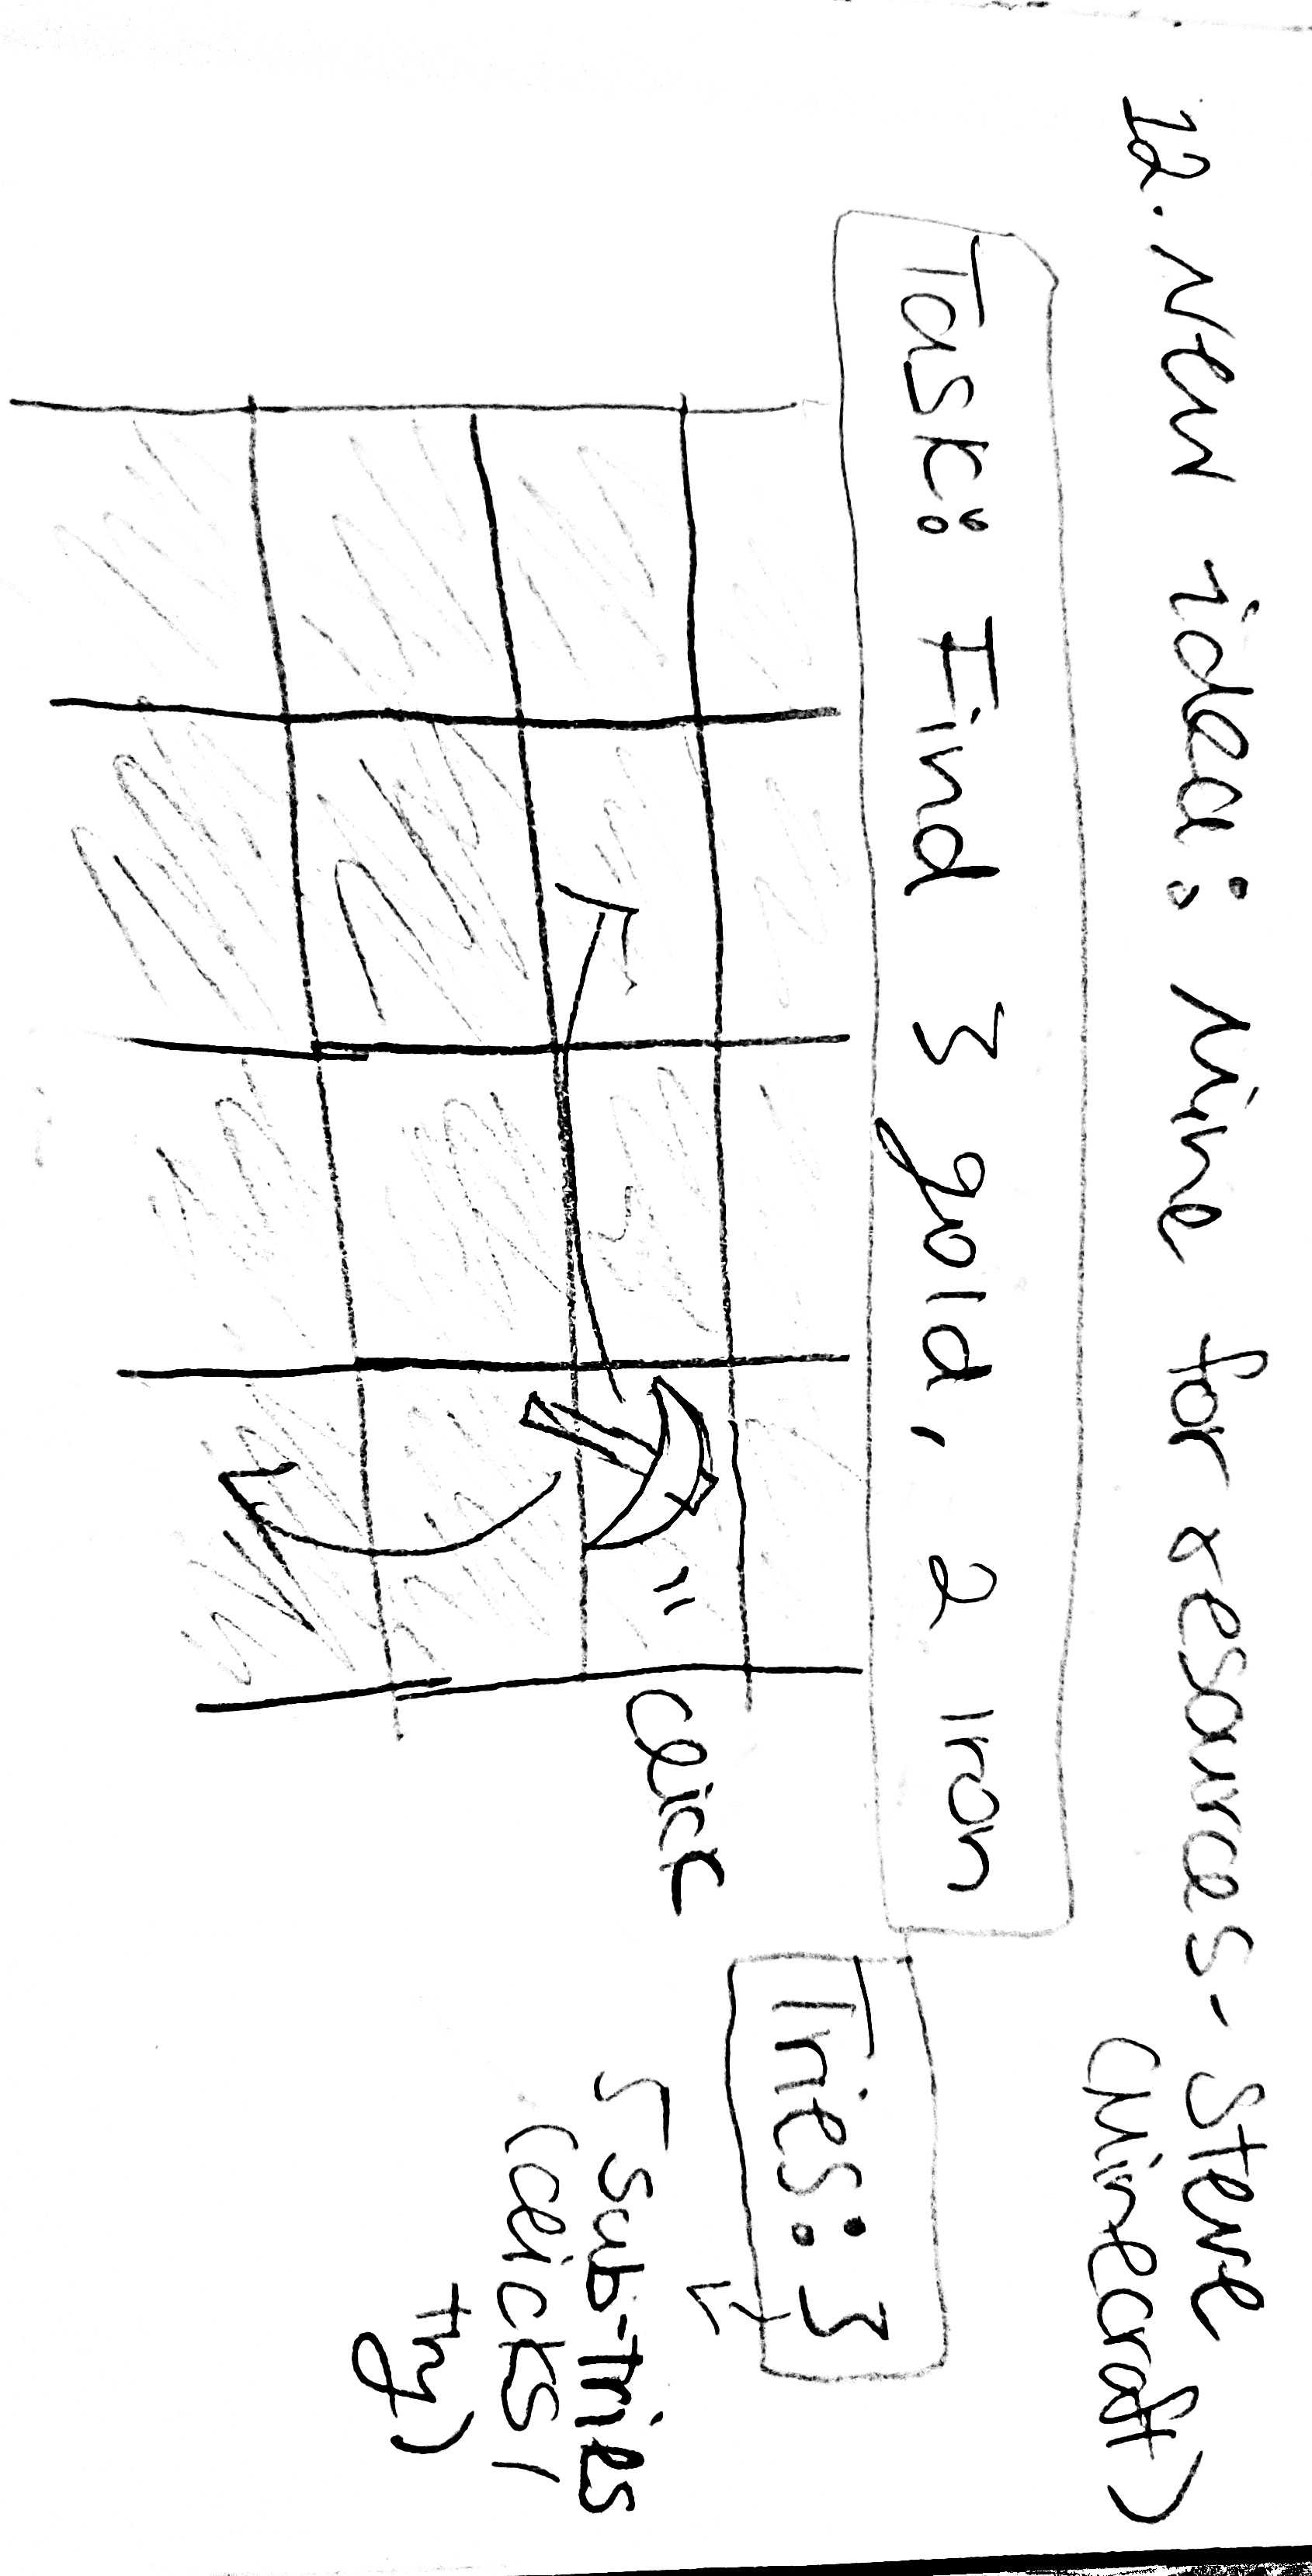 12. New idea: Mine for resources - Steve
(Minecraft)
Task: Find 3 gold, 2 Iron
Tries: 3
click
5 sub-tries
(clicks/
try)